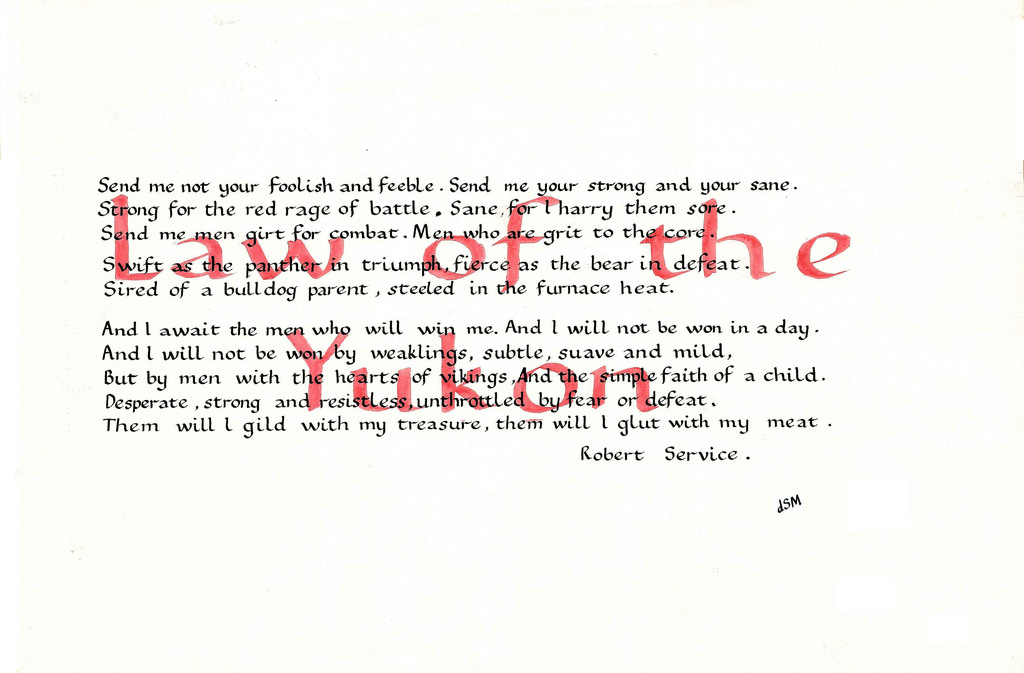 Law of the
Yukon
Send me not your foolish and feeble. Send me your strong and your sane.
Strong for the red rage of battle. Sane, for I harry them sore.
Send me men girt for combat. Men who are grit to the core.
Swift as the panther in triumph, fierce as the bear in defeat.
Sired of a bulldog parent, steeled in the furnace heat.
And I await the men who will win me. And I will not be won in a day.
And I will not be won by weaklings, subtle, suave and mild,
But by men with the hearts of vikings, And the simple faith of a child.
Desperate, strong and resistless, unthrottled by fear or defeat.
Them will I gild with my treasure, them will I glut with my meat.
Robert Service.
dSM